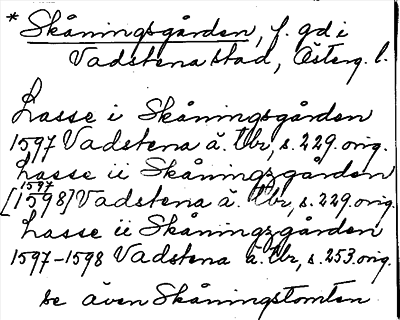 * Skåningsgården, f. gd i
Vadstena stad, Österg. l.
Lasse i Skåningsgården
1597 Vadstena ä. tbr, s. 229. orig.
Lasse ii Skåningzgården
1597
[1598] Vadstena ä. tbr, s. 229. orig.
Lasse ii Skåningzgården
1597-1598 Vadstena ä. tbr, s. 253. orig.
se även Skåningstomten